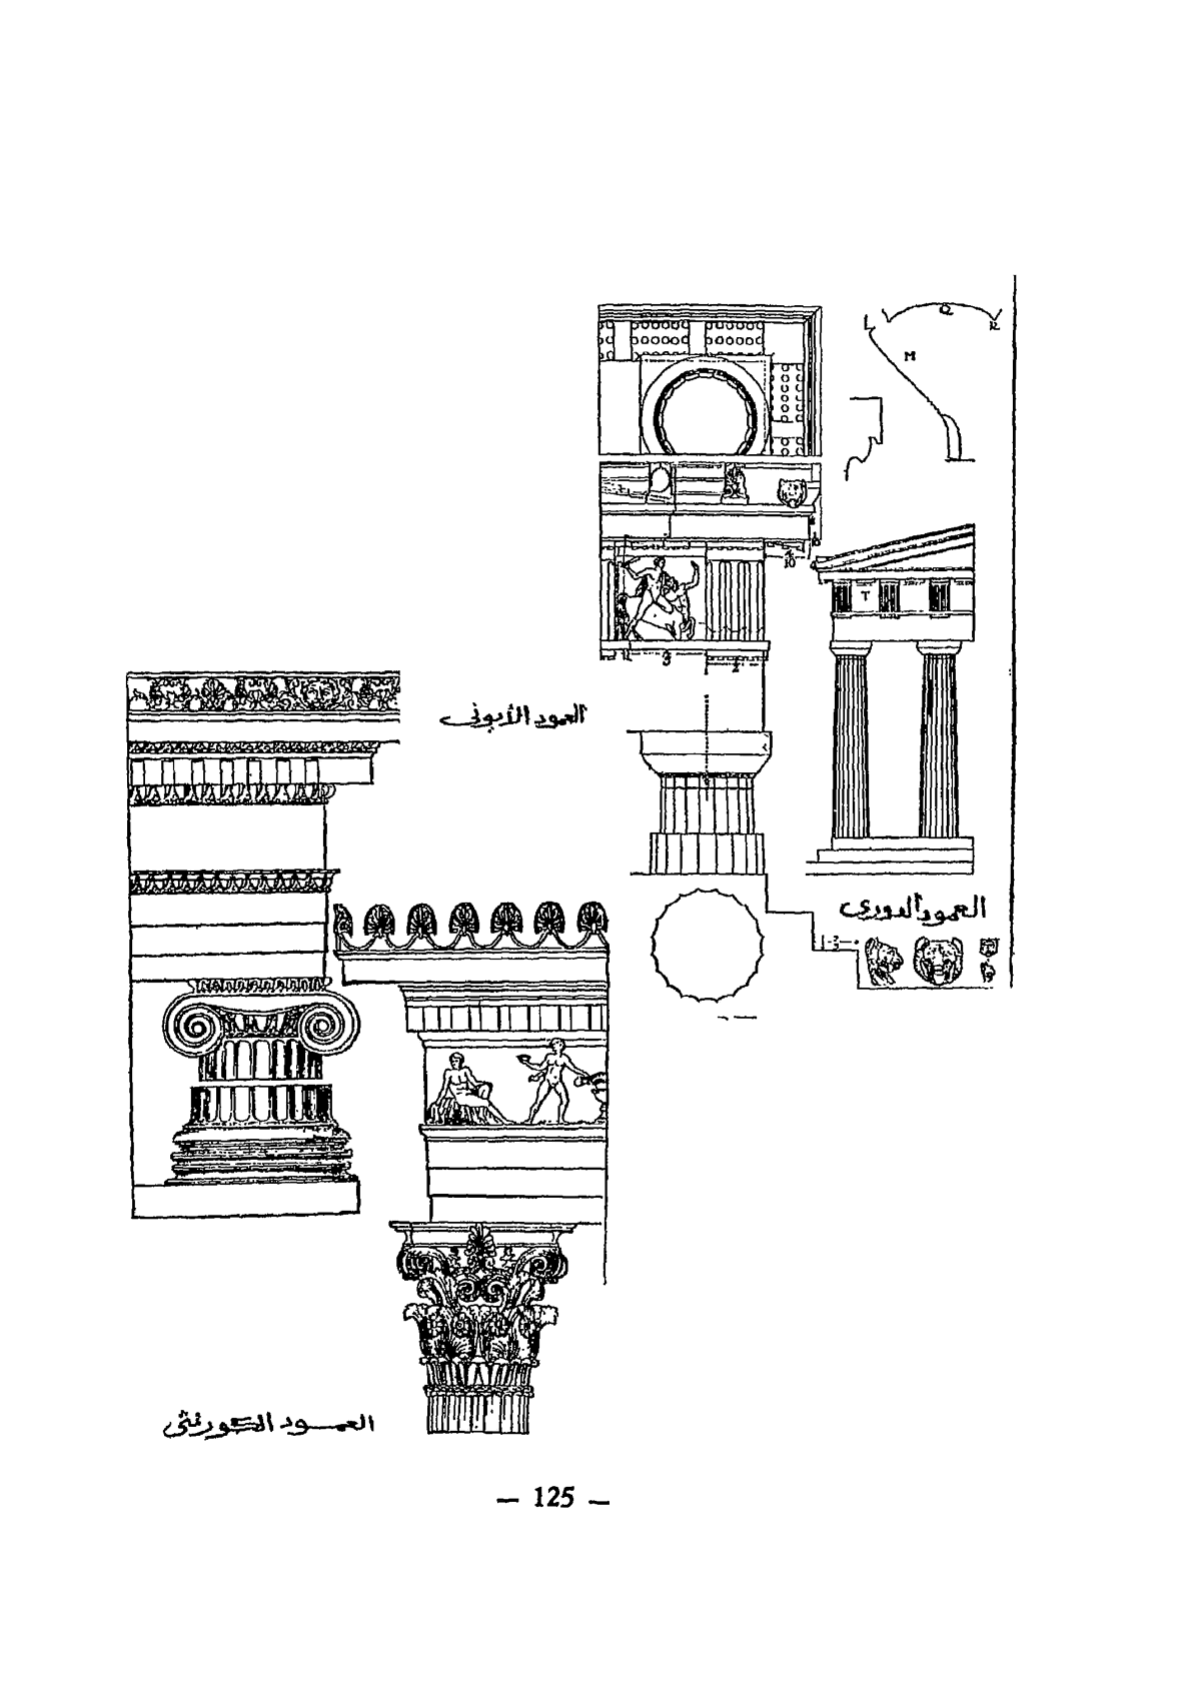 L Q R
M
4
10
T
3 2
العمود الأيوني
العمود الدوري
العمود الكورنثي
— 125 —